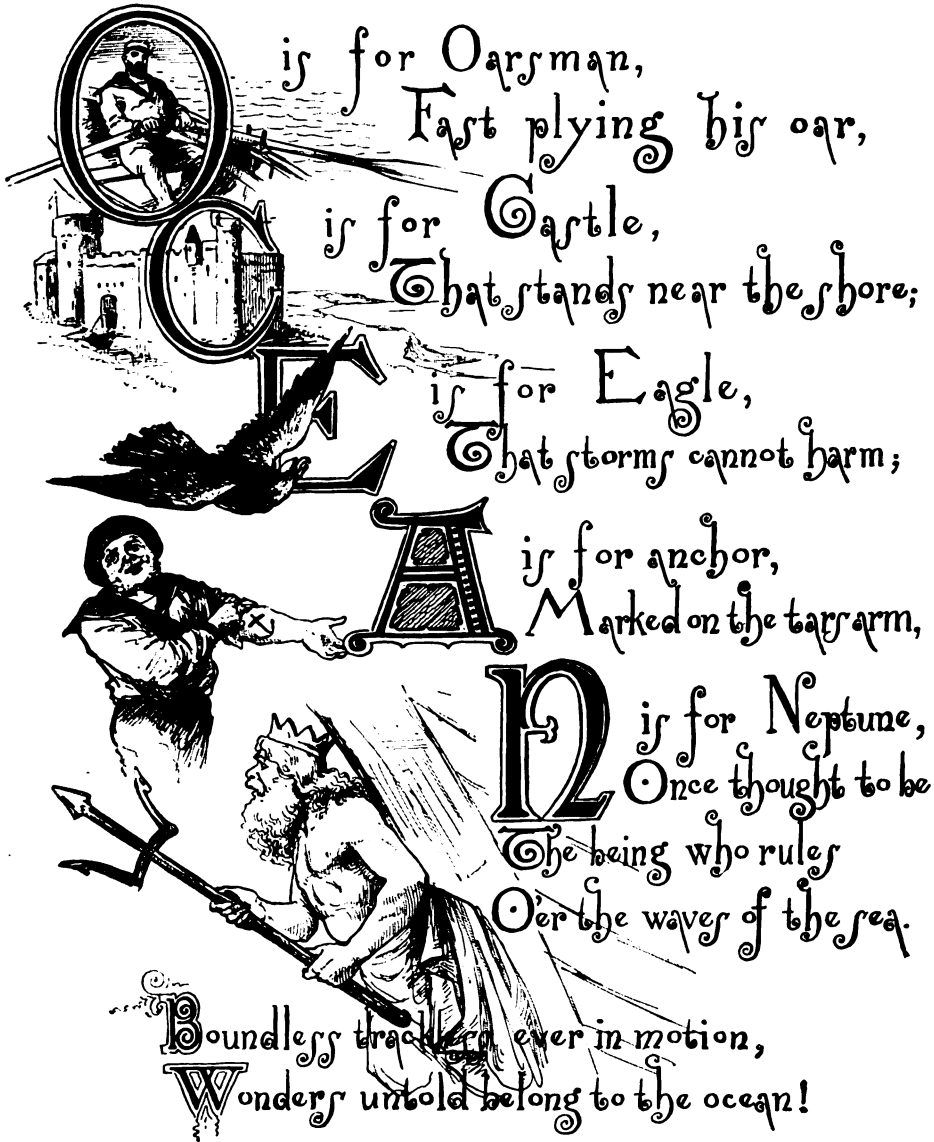 O is for Oarsman,
Fast plying his oar,
C is for Castle,
That stands near the shore;
E is for Eagle,
That storms cannot harm;
A is for anchor,
Marked on the tarsarm,
N is for Neptune,
Once thought to be
The being who rules
O'er the waves of the sea.
Boundless trackless ever in motion,
Wonders untold belong to the ocean!